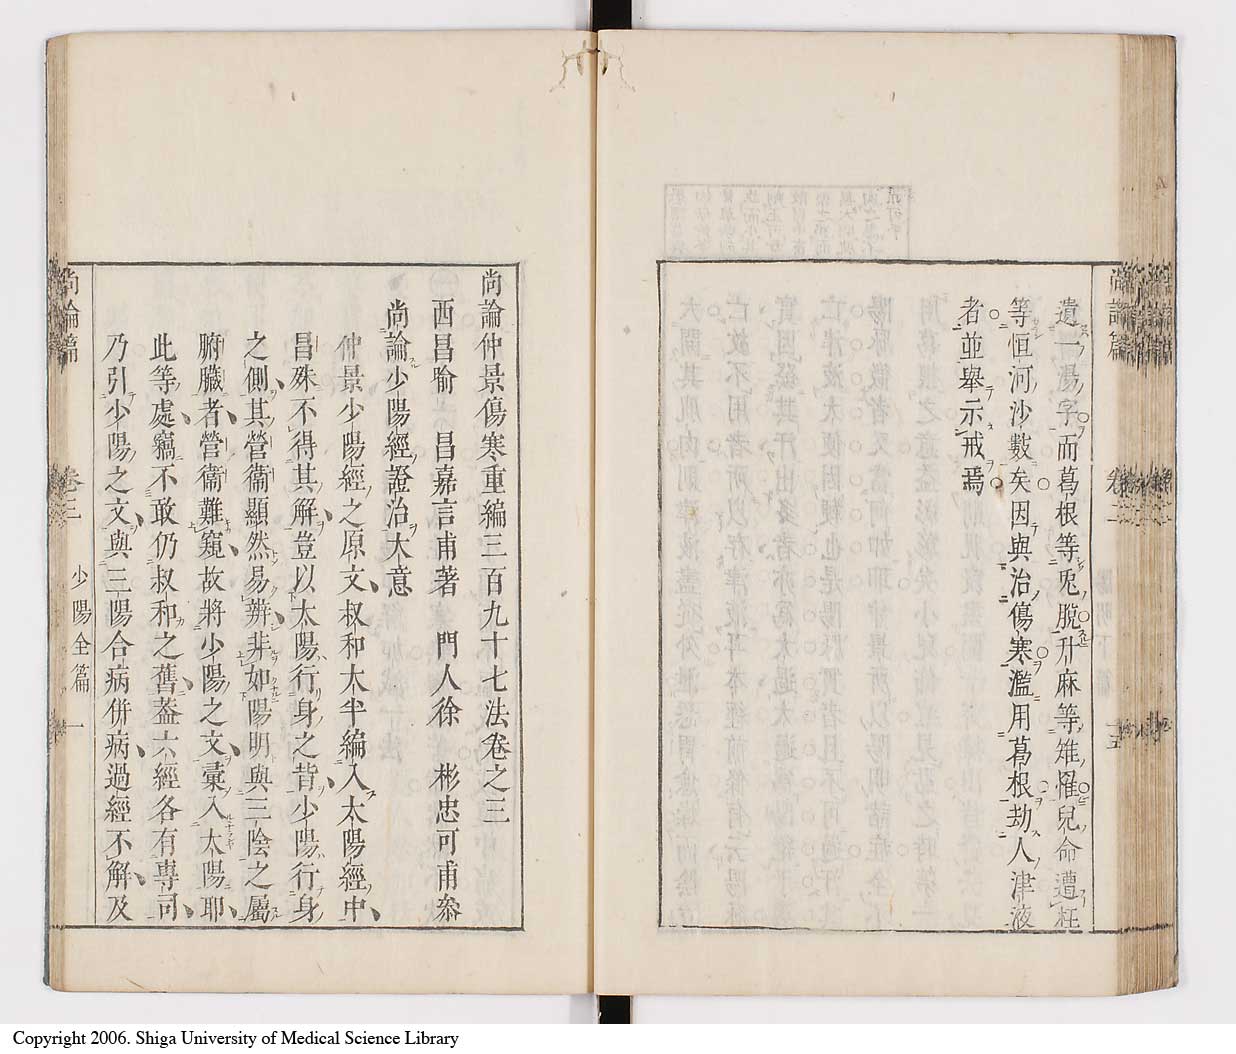 遺一湯字而葛根等兎脫升麻等雉罹兒命遭枉
等恒河沙數矣因與治傷寒濫用葛根劫人津液
者並舉示戒焉
尚論仲景傷寒重編三百九十七法卷之三
西昌喻　昌嘉言甫著　門人徐　彬忠可甫叅
尚論少陽經證治大意
仲景少陽經之原文叔和大半編入太陽經中
昌殊不得其解豈以太陽行身之背少陽行身
之側其營衞顯然易辨非如陽明與三陰之屬
腑臟者營衞難窺故將少陽之文彙入太陽耶
此等處竊不敢仍叔和之舊葢六經各有專司
乃引少陽之文與三陽合病併病過經不解及
尚論篇　卷三　少陽全篇　一
Copyright 2006. Shiga University of Medical Science Library